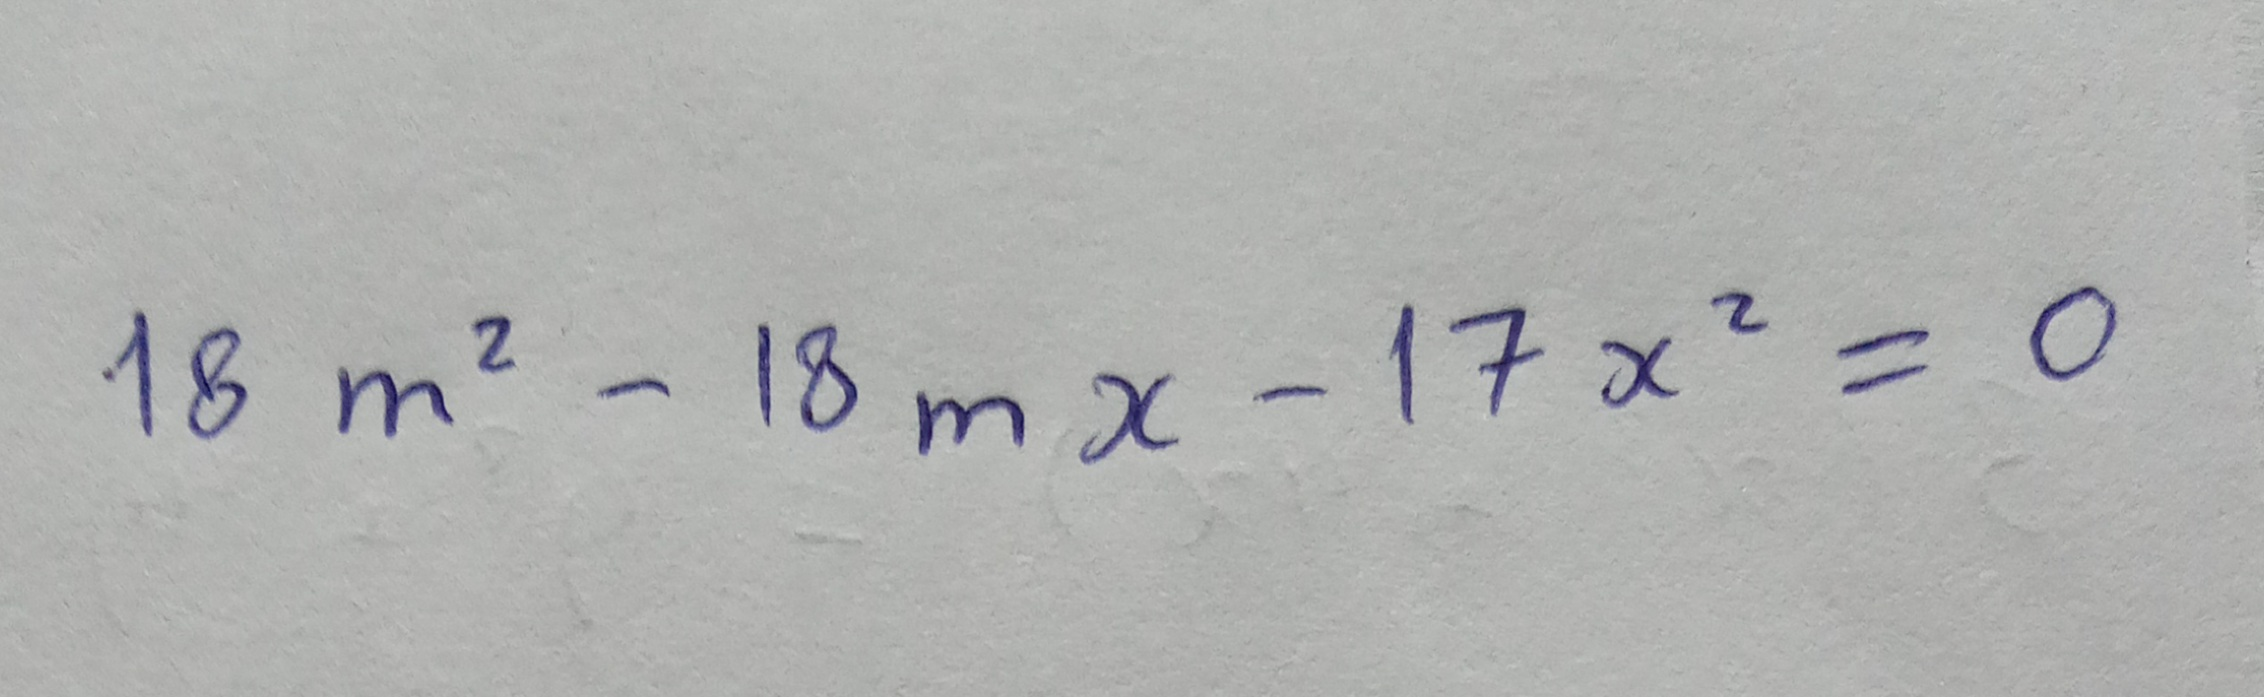 18 m² - 18 m x - 17 x² = 0